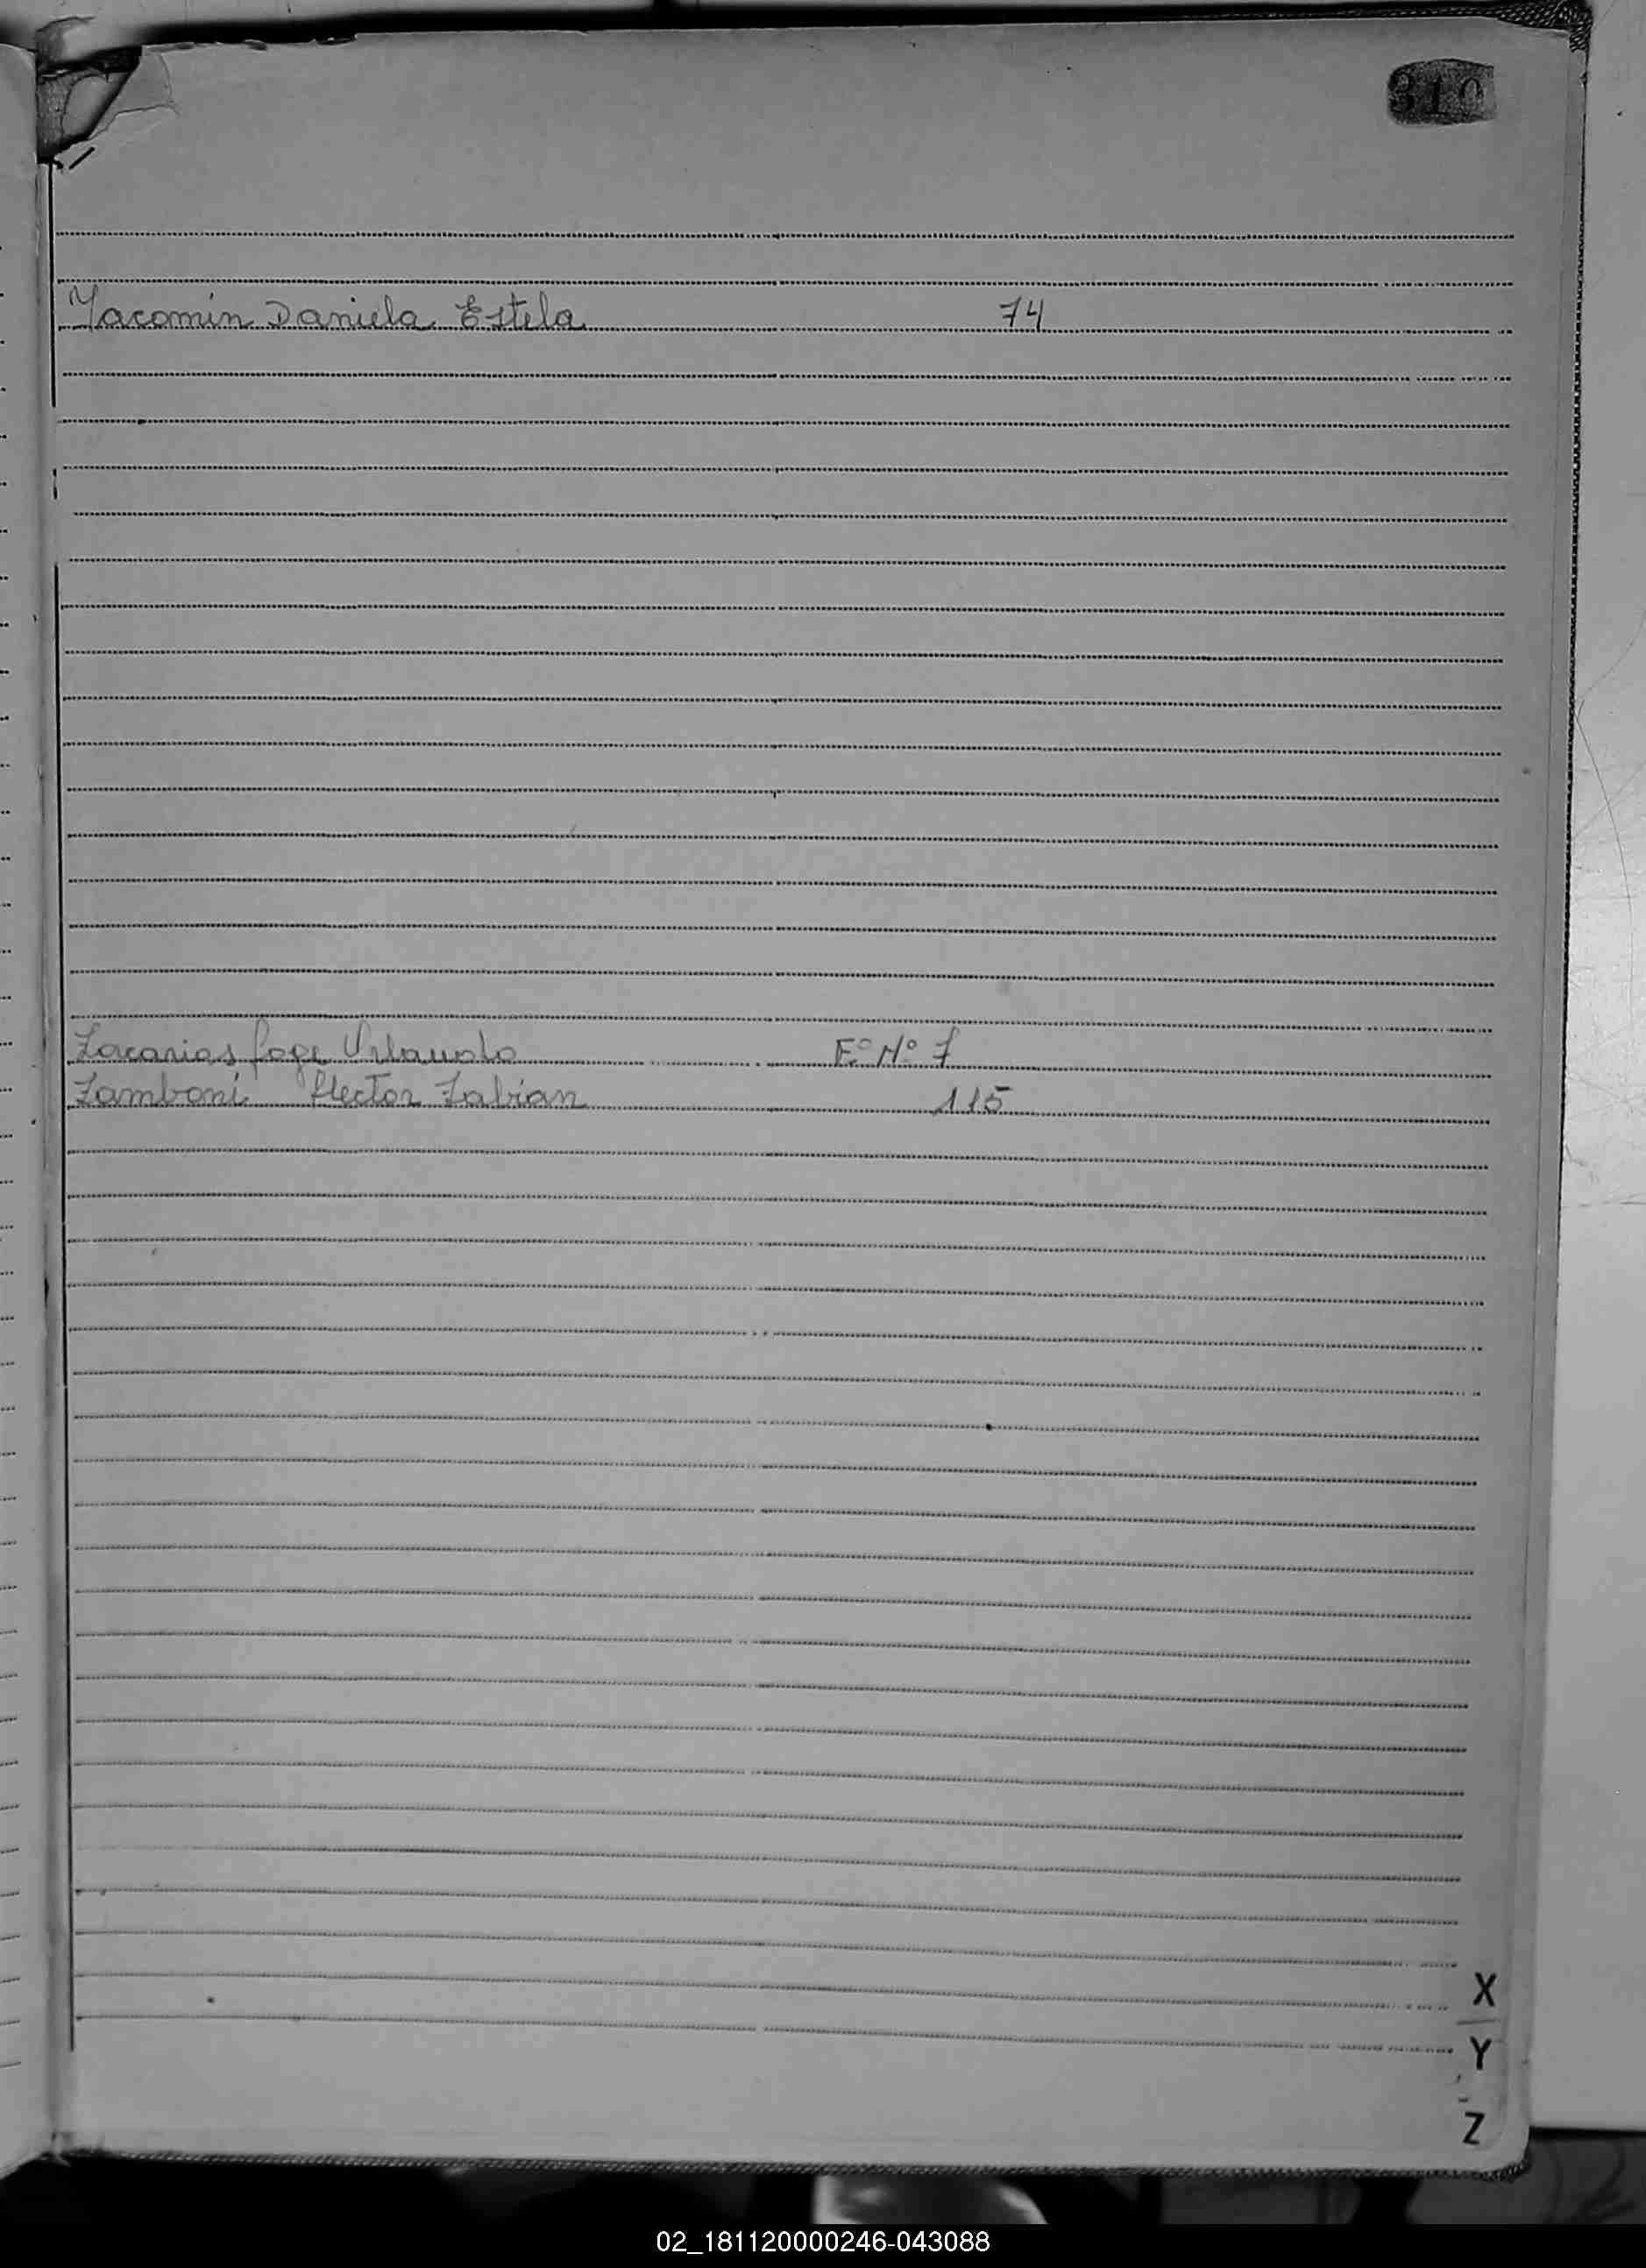 310
Yacomin Daniela Estela 74
Zacarias Jorge Orlando Fº Nº 7
Zamboni Hector Fabian 115
X
Y
Z
02_181120000246-043088